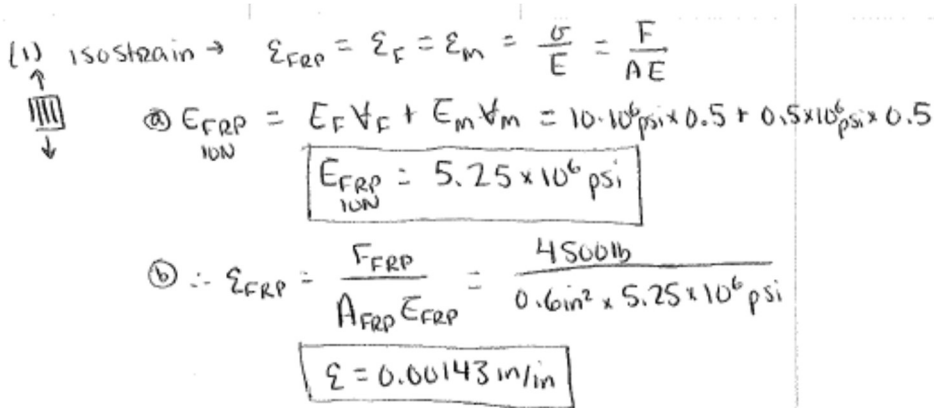 (1) isostrain → ε_FRP = ε_F = ε_m = σ/E = F/AE
ⓐ E_FRP ION = E_F V_F + E_m V_m = 10·10⁶psi × 0.5 + 0.5×10⁶psi × 0.5
E_FRP ION = 5.25 × 10⁶ psi
ⓑ ∴ ε_FRP = F_FRP / A_FRP E_FRP = 4500lb / 0.6in² × 5.25 × 10⁶ psi
ε = 0.00143 in/in